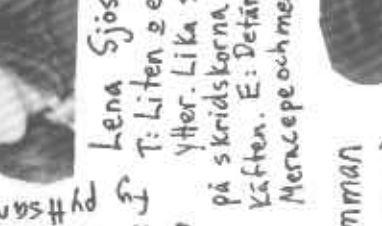 Lena Sjös
T: Liten o e
ytter. Lika
på skridskorna
käften. E: Detär
Meracepeochme
mman